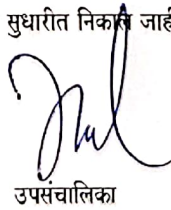 सुधारीत निकाल जाही
उपसंचालिका